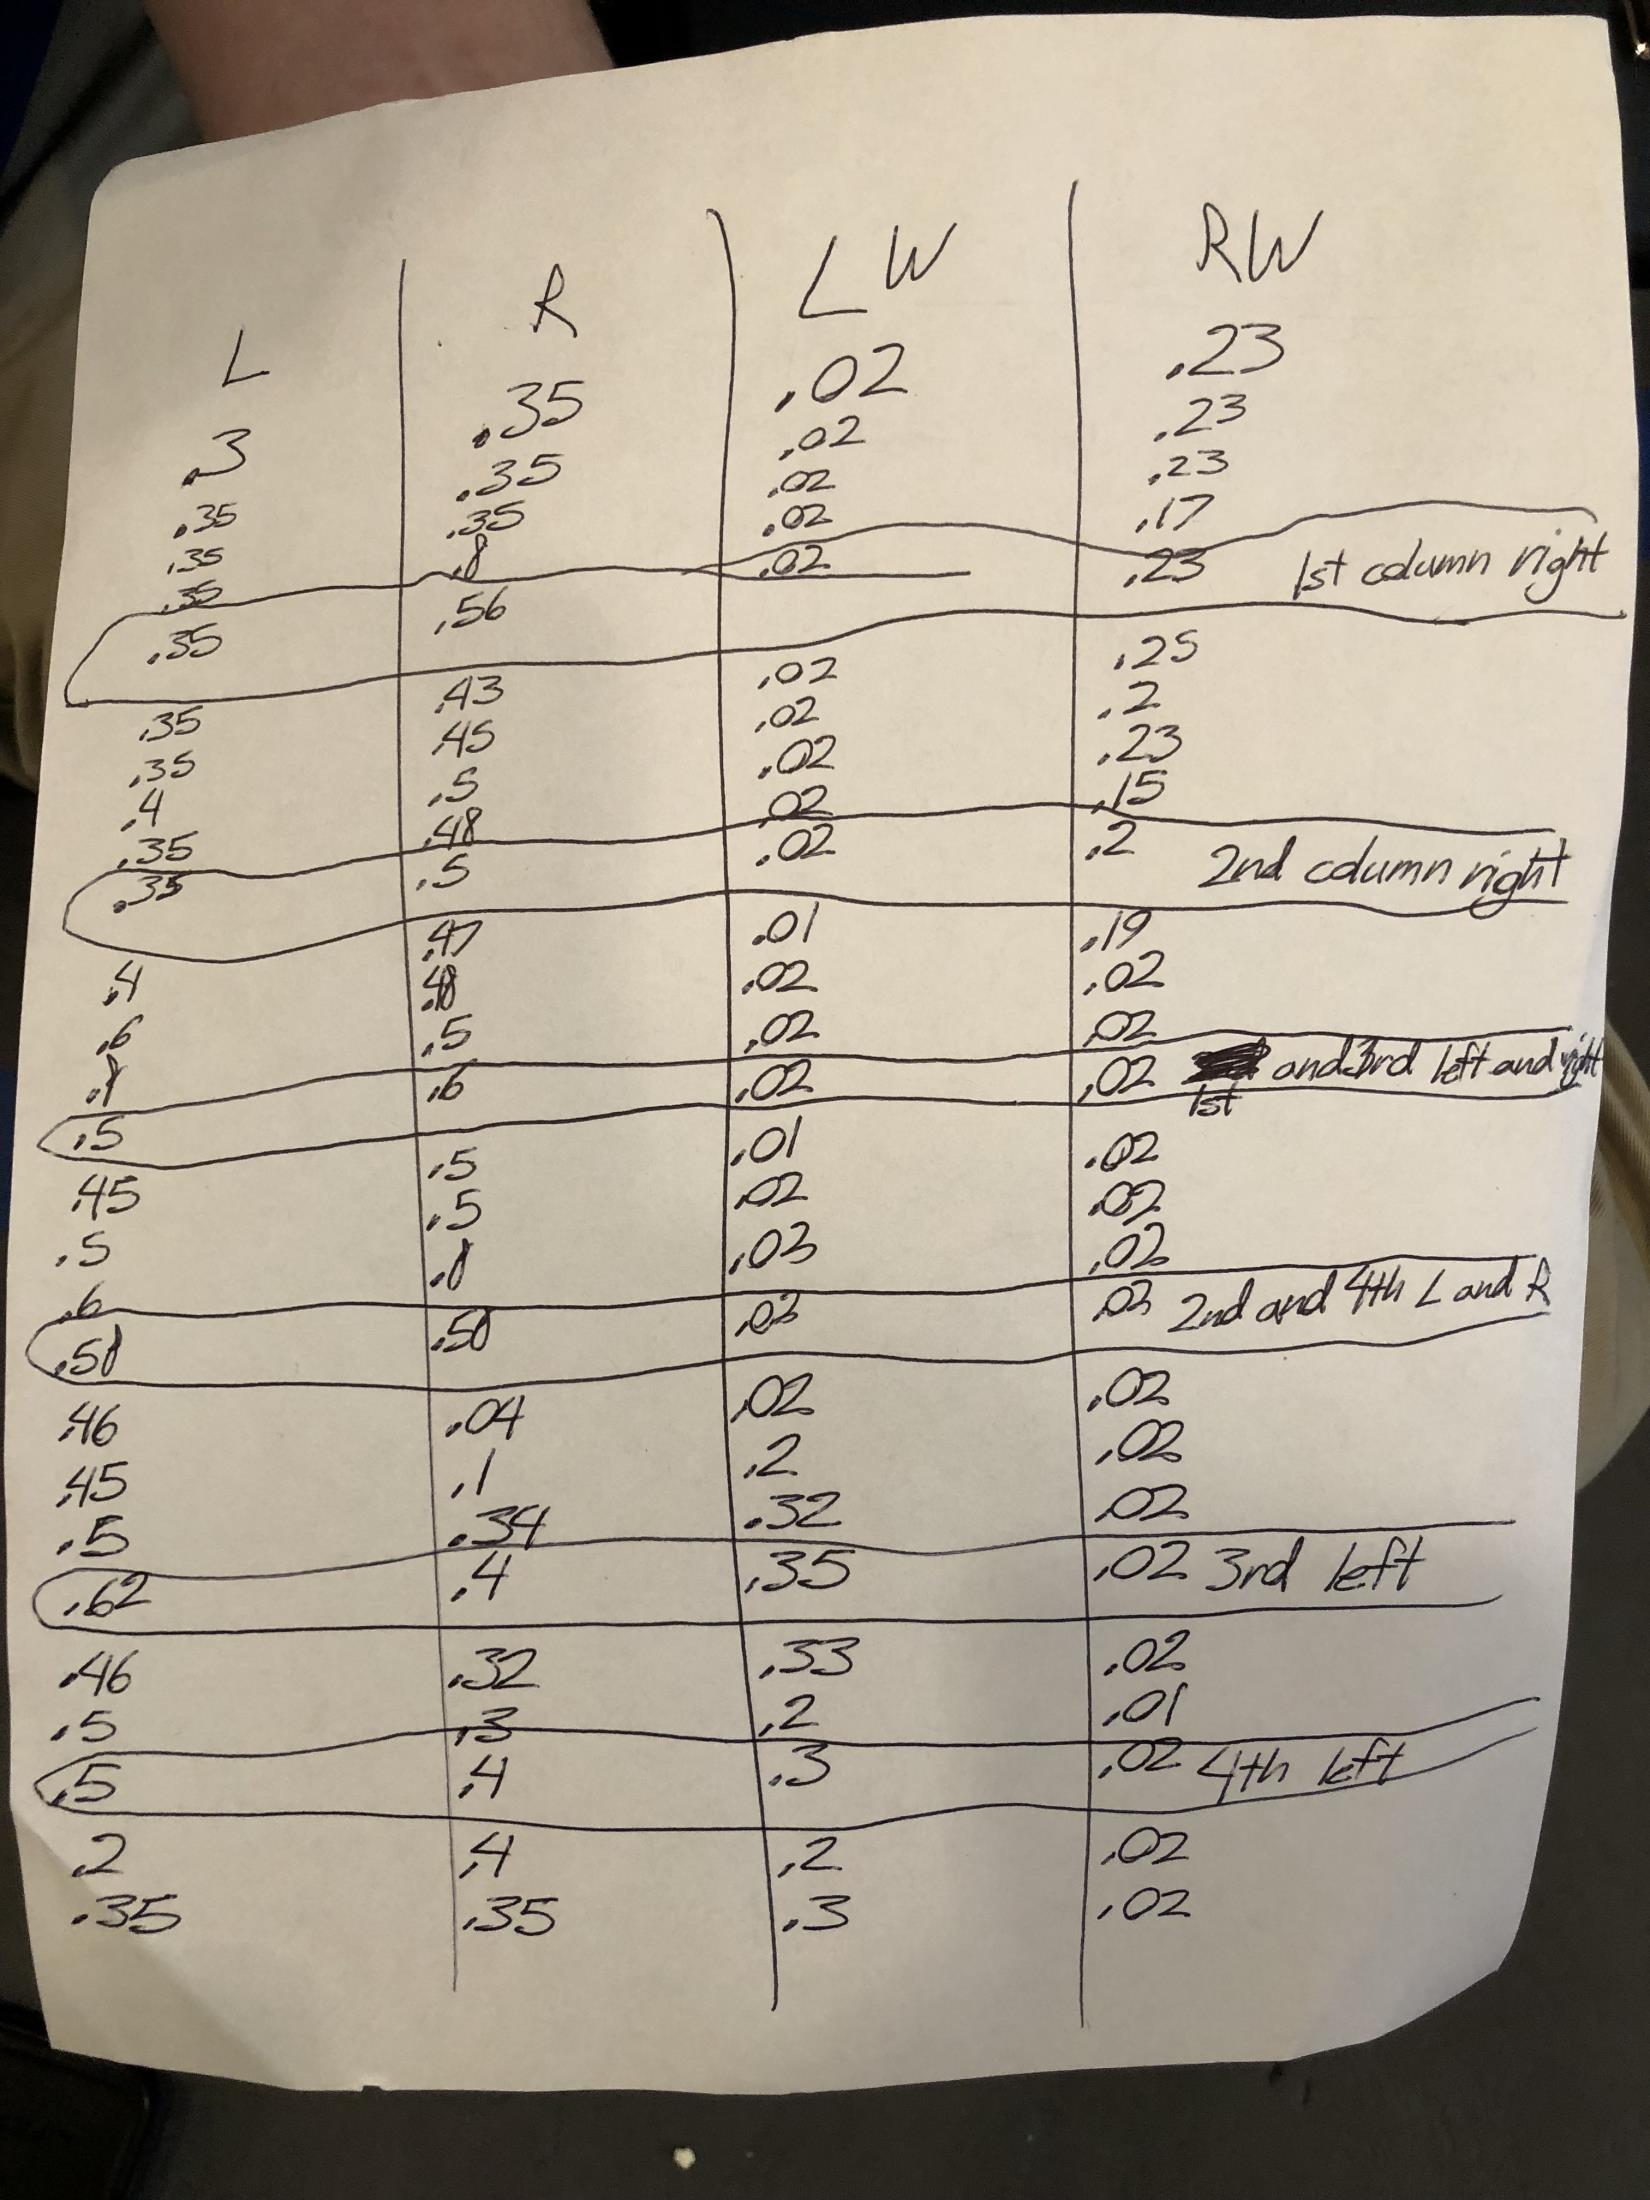 L R LW RW
.3 .35 .02 .23
.35 .35 .02 .23
.35 .35 .02 .23
.35 .8 .02 .17
.35 .56 .02 .23 1st column right
.35 .43 .02 .25
.35 .45 .02 .2
.4 .5 .02 .23
.35 .48 .02 .15
.35 .5 .02 .2 2nd column right
.4 .47 .01 .19
.6 .48 .02 .02
.8 .5 .02 .02
.5 .6 .02 .02 1st and 3rd left and right
.45 .5 .01 .02
.5 .5 .02 .02
.6 .8 .03 .02
.58 .58 .03 .02 2nd and 4th L and R
.46 .04 .02 .02
.45 .1 .2 .02
.5 .34 .32 .02
.62 .4 .35 .02 3rd left
.46 .32 .33 .02
.5 .3 .2 .01
.5 .4 .3 .02 4th left
.2 .4 .2 .02
.35 .35 .3 .02